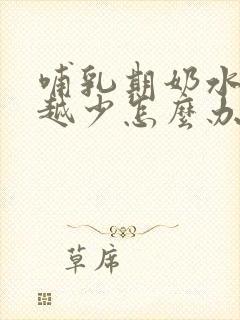 哺乳期奶水
越少怎麼办
草席